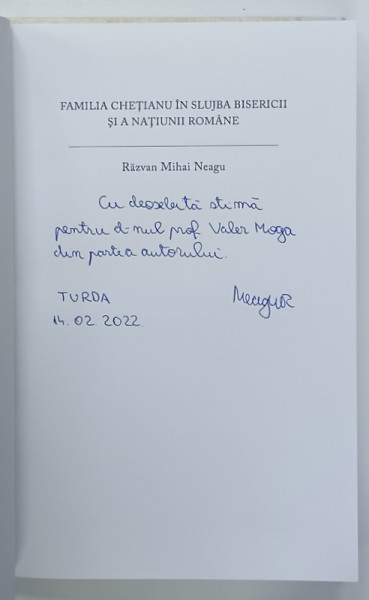 FAMILIA CHEȚIANU ÎN SLUJBA BISERICII
ȘI A NAȚIUNII ROMÂNE
Răzvan Mihai Neagu
Cu deosebită stimă
pentru d-nul prof. Valer Moga
din partea autorului.
TURDA
NeaguR
14.02.2022